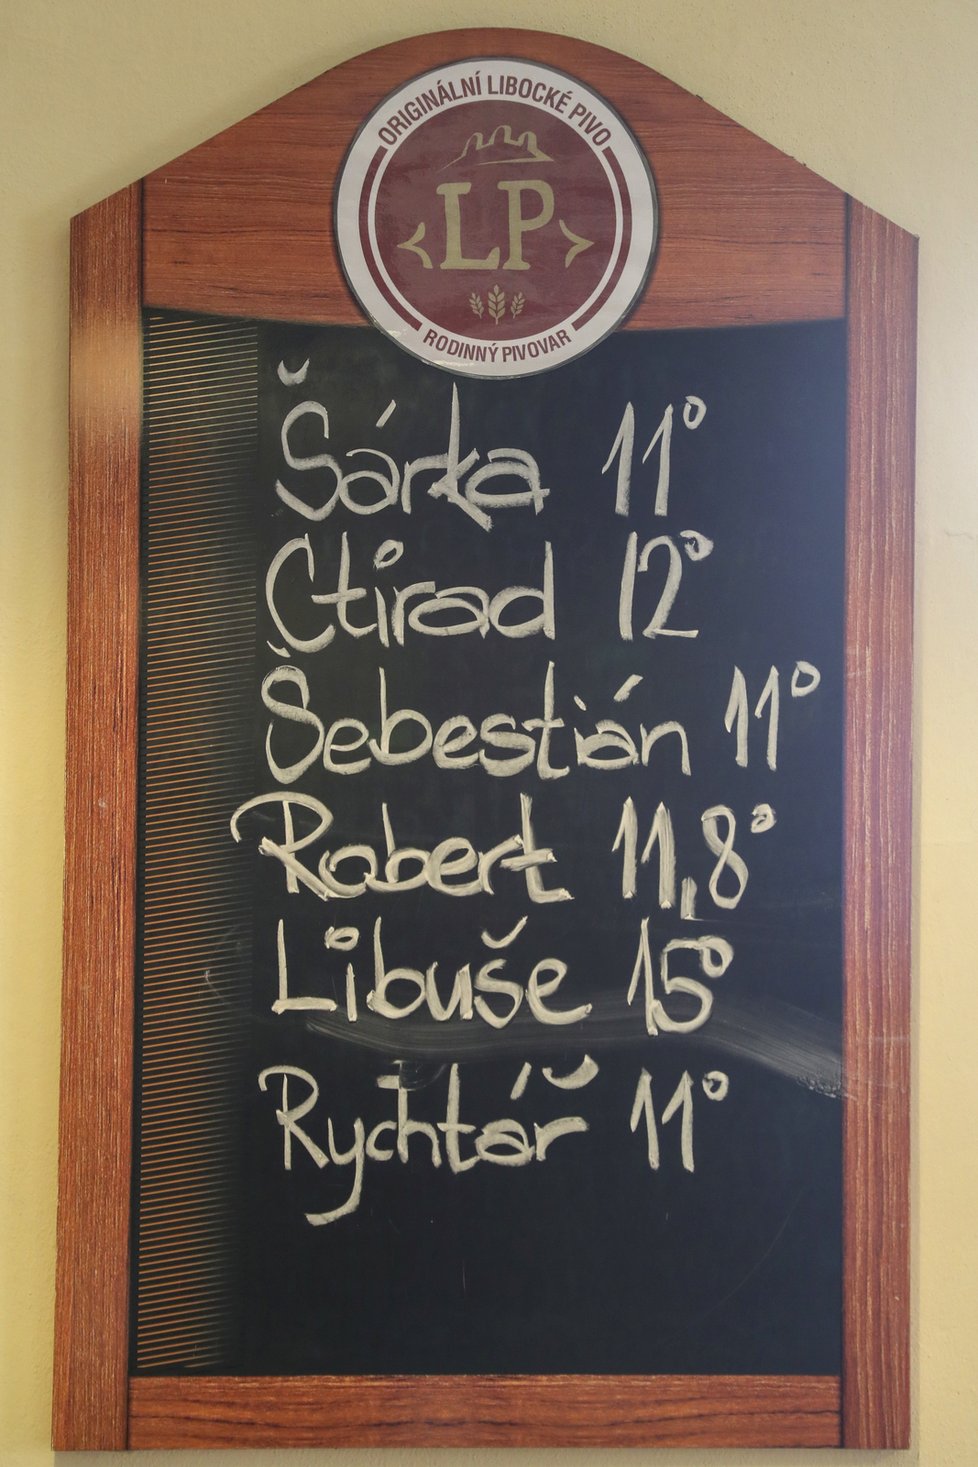 ORIGINÁLNÍ LIBOCKÉ PIVO
LP
RODINNÝ PIVOVAR
Šárka 11°
Ctirad 12°
Šebestián 11°
Robert 11,8°
Libuše 15°
Rychtář 11°